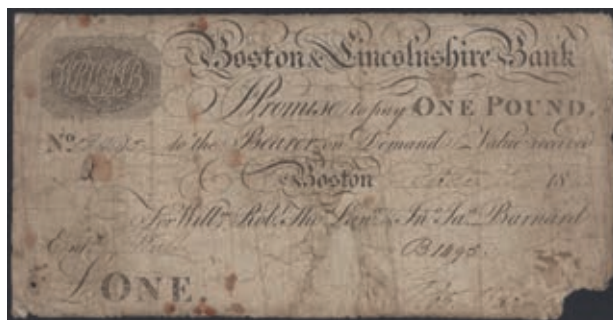 Boston & Lincolnshire Bank
I Promise to pay ONE POUND,
No. to the Bearer on Demand Value received
Boston 18
For Willm. Robt. Thos. & Jno. Jas. Barnard
Entd.
B1495
£ ONE.